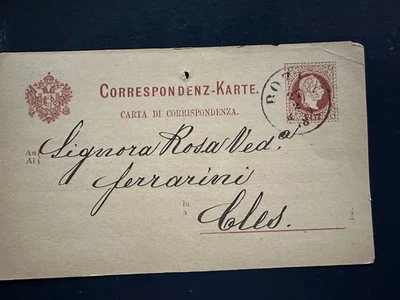 CORRESPONDENZ-KARTE.
CARTA DI CORRISPONDENZA.
An
Al
Signora Rosa Ved.a
Ferrarini
in
a
Cles.